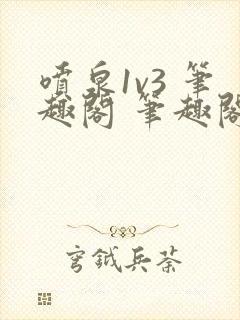 噴泉1v3 筆
趣閣 筆趣閣
穹鉞兵荼